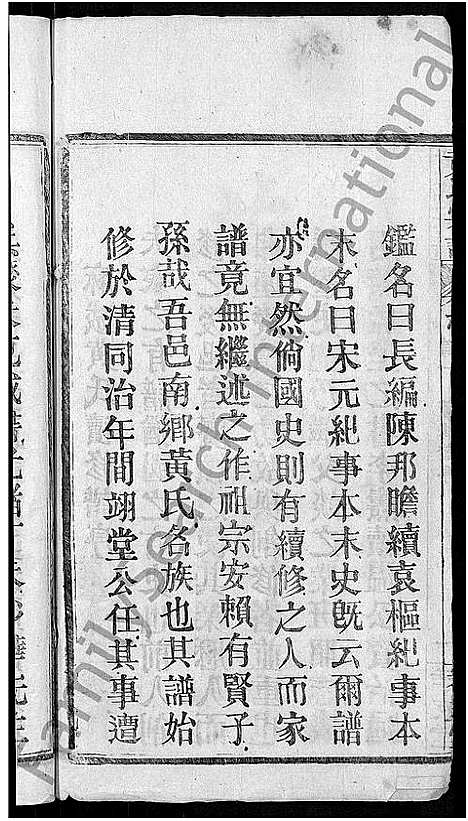 鑑名曰長編陳邦瞻續袁樞紀事本
末名曰宋元紀事本末史旣云爾譜
亦宜然倘國史則有續修之人而家
譜竟無繼述之作祖宗安賴有賢子
孫哉吾邑南鄉黃氏名族也其譜始
修於清同治年間翊堂公任其事遭
Family Search International